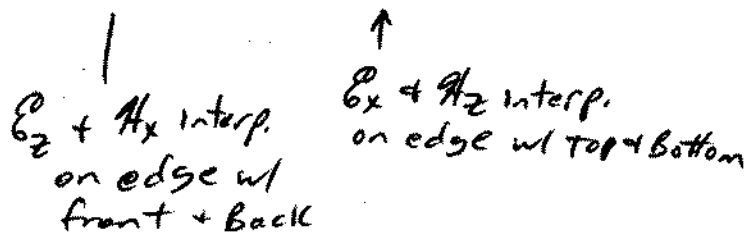 ℰz + ℋx interp.
on edge w/
front + Back
ℰx + ℋz interp.
on edge w/ Top + Bottom